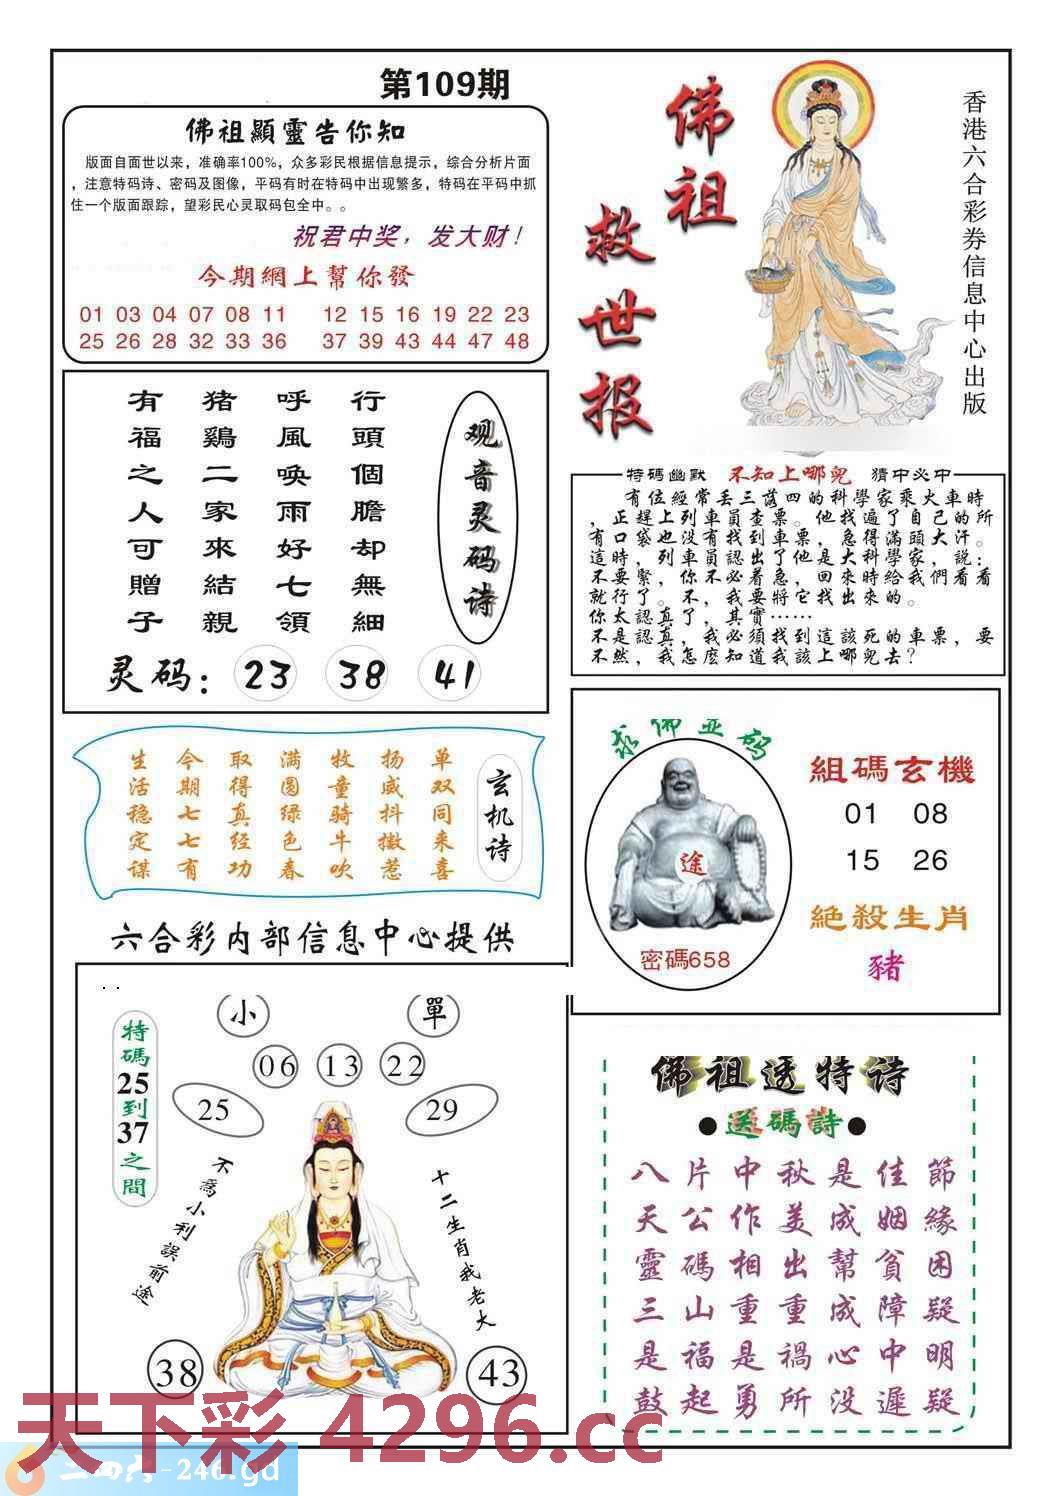 第109期
佛祖顯靈告你知
版面自面世以来，准确率100%，众多彩民根据信息提示，综合分析片面
，注意特码诗、密码及图像，平码有时在特码中出现繁多，特码在平码中抓
住一个版面跟踪，望彩民心灵取码包全中。。
祝君中奖，发大财！
今期網上幫你發
01 03 04 07 08 11 12 15 16 19 22 23
25 26 28 32 33 36 37 39 43 44 47 48
佛祖
救世报
香港六合彩券信息中心出版
观音灵码诗
行頭個膽却無細
呼風喚雨好七領
猪鷄二家來結親
有福之人可贈子
灵码： 23 38 41
特碼幽默 不知上哪兒 猜中必中
有位經常丢三落四的科學家乘火車時
，正趕上列車員查票。他找遍了自己的所
有口袋也没有找到車票，急得滿頭大汗。
這時，列車員認出了他是大科學家，説：
不要緊，你不必着急，回來時給我們看看
就行了。不，我要將它找出來的。
你太認真了，其實……
不是認真，我必須找到這該死的車票，要
不然，我怎麽知道我該上哪兒去？
玄机诗
单双同来喜
扬威抖擞惹
牧童骑牛吹
满圆绿色春
取得真经功
今期七七有
生活稳定谋
求佛显码
途
密碼658
組碼玄機
01 08
15 26
絶殺生肖
豬
六合彩内部信息中心提供
特碼25到37之間
小 單
06 13 22
25 29
不爲小利誤前途
十二生肖我老大
38 43
佛祖透特诗
●送碼詩●
八片中秋是佳節
天公作美成姻緣
靈碼相出幫貧困
三山重重成障疑
是福是禍心中明
鼓起勇所没遲疑
天下彩 4296.cc
二四六-246.gd